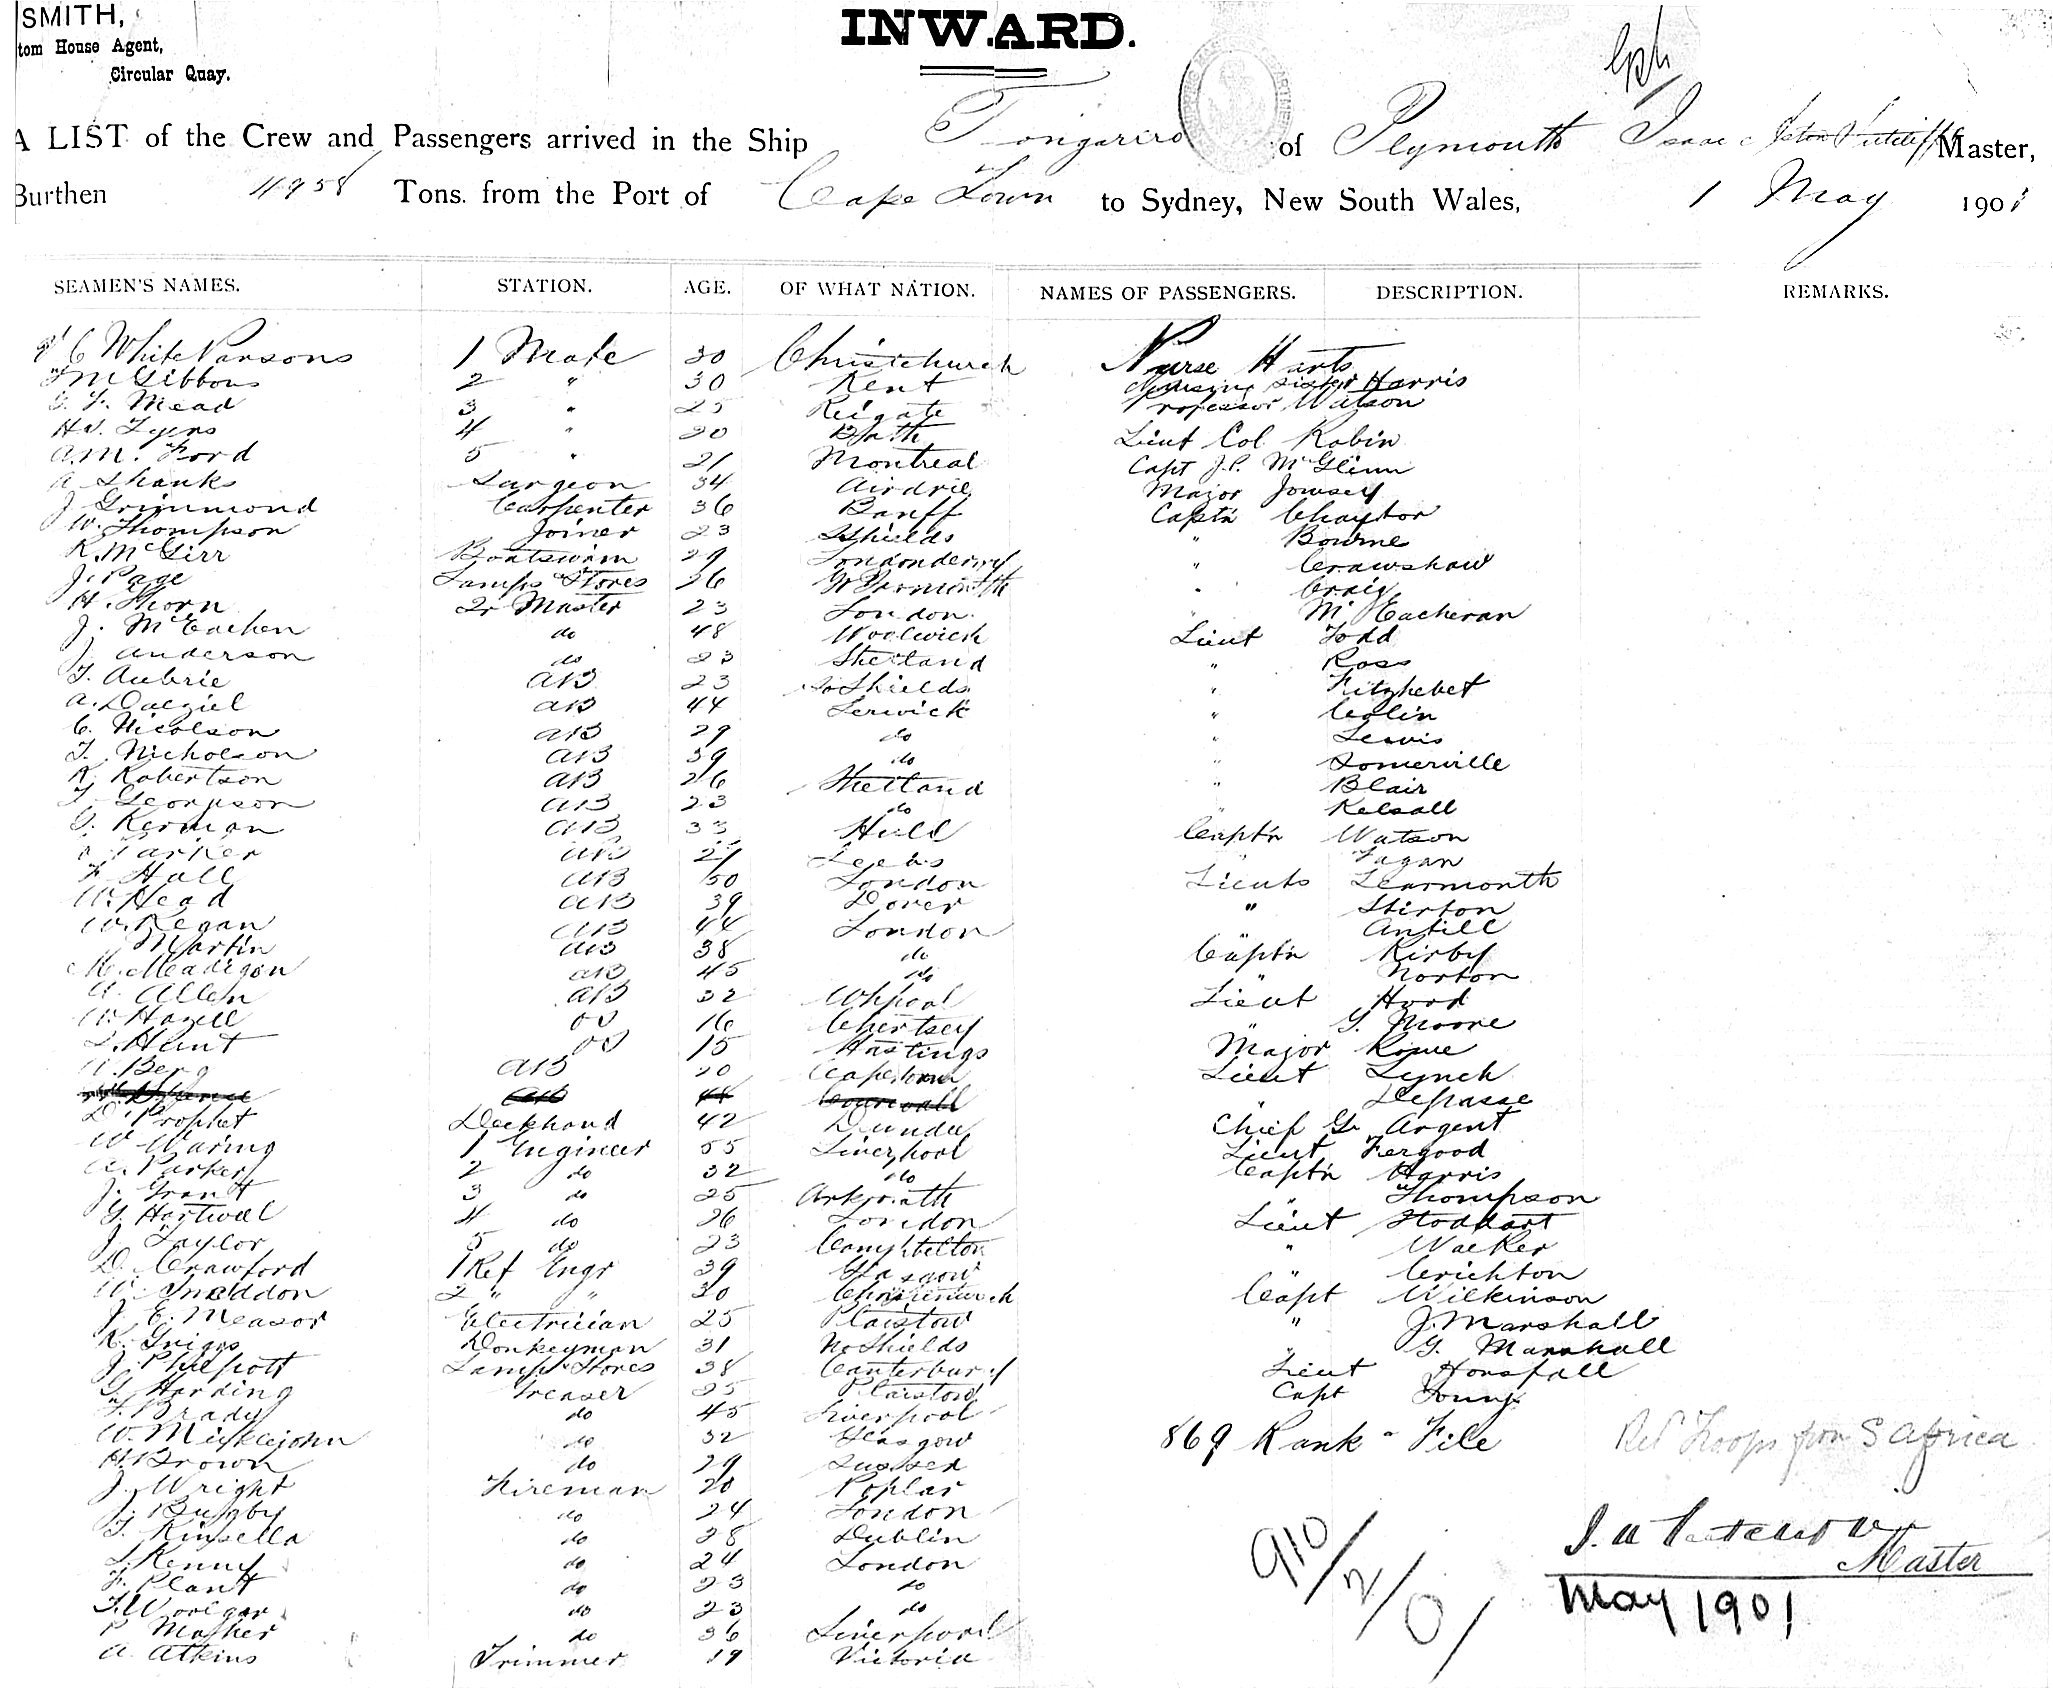 SMITH,
tom House Agent,
Circular Quay.
INWARD.
A LIST of the Crew and Passengers arrived in the Ship Tongariro of Plymouth Isaac Master,
Burthen 4958 Tons. from the Port of Cape Town to Sydney, New South Wales, 1 May 1901
SEAMEN'S NAMES. STATION. AGE. OF WHAT NATION. NAMES OF PASSENGERS. DESCRIPTION. REMARKS.
C White Parsons 1 Mate 30 Christchurch Nurse Harts
Gibbons 2 " 30 Kent Nursing Sister Harris
Mead 3 " 25 Reigate Professor Watson
Tyers 4 " 20 Bath Lieut Col Robin
A.M. Ford 5 " 21 Montreal Capt J.P. McGlinn
A Shanks Surgeon 34 Airdrie Major Jowsey
J Grimmond Carpenter 36 Banff Captn Chaytor
W. Thompson Joiner 23 Shields " Bourne
R. McGirr Boatswain 29 Londonderry " Crawshaw
J. Page Lamps & Stores 26 " Craig
H. Thorn Qr Master 23 London " McEacheran
J. McEachen do 48 Woolwich Lieut Todd
J. Anderson do 23 Shetland " Ross
T. Aubrie AB 23 So Shields "
A. Dalziel AB 44 Lerwick " Colin
C. Nicolson AB 29 do " Lewis
T. Nicholson AB 39 do " Somerville
R. Robertson AB 26 Shetland " Blair
AB 23 do " Kelsall
G. Kerman AB 33 Hull Captn Watson
Parker AB 27 Leeds " Fagan
F Hall AB 50 London Lieuts Learmonth
W. Head AB 39 Dover " Stirton
W. Regan AB 44 London Antill
Martin AB 38 do Captn Kirby
M. Madigan AB 45 do " Norton
A. Allen AB 32 Lieut Hord
W. Hazell OS 16 Chertsey " G. Moore
Hunt OS 15 Hastings Major Rowe
Berg AB 20 Capetown Lieut Lynch
AB 44 Cornwall " Depasse
D. Prophet Deckhand 42 Dundee Chief G. Argent
W Waring 1 Engineer 55 Liverpool Lieut Fergood
A. Parker 2 do 32 do Captn Harris
J. Grant 3 do 25 " Thompson
G. Hartwell 4 do 26 London Lieut Stoddart
J Taylor 5 do 23 Campbelton " Walker
D. Crawford 1 Ref Engr 39 Glasgow " Crichton
W. Sneddon 2 " " 30 Christchurch Capt Wilkinson
J. E. Measor Electrician 25 Plaistow " J. Marshall
R. Griggs Donkeyman 31 No Shields " G. Marshall
J. Philpott Lamps & Stores 38 Canterbury Lieut Horsfall
G. Harding Greaser 25 Plaistow Capt Young
F. Brady do 45 Liverpool
W. Micklejohn do 32 Glasgow 869 Rank & File Ret Troops from S Africa
H. Brown do 29 Sussex
J. Wright Fireman 20 Poplar
J. Bugby do 24 London
T. Kinsella do 28 Dublin
Kenny do 24 London 910/2/0/ Master
F. Plant do 23 do May 1901
F. Woolgar do 23 do
P Mather do 36 Liverpool
A. Atkins Trimmer 19 Victoria